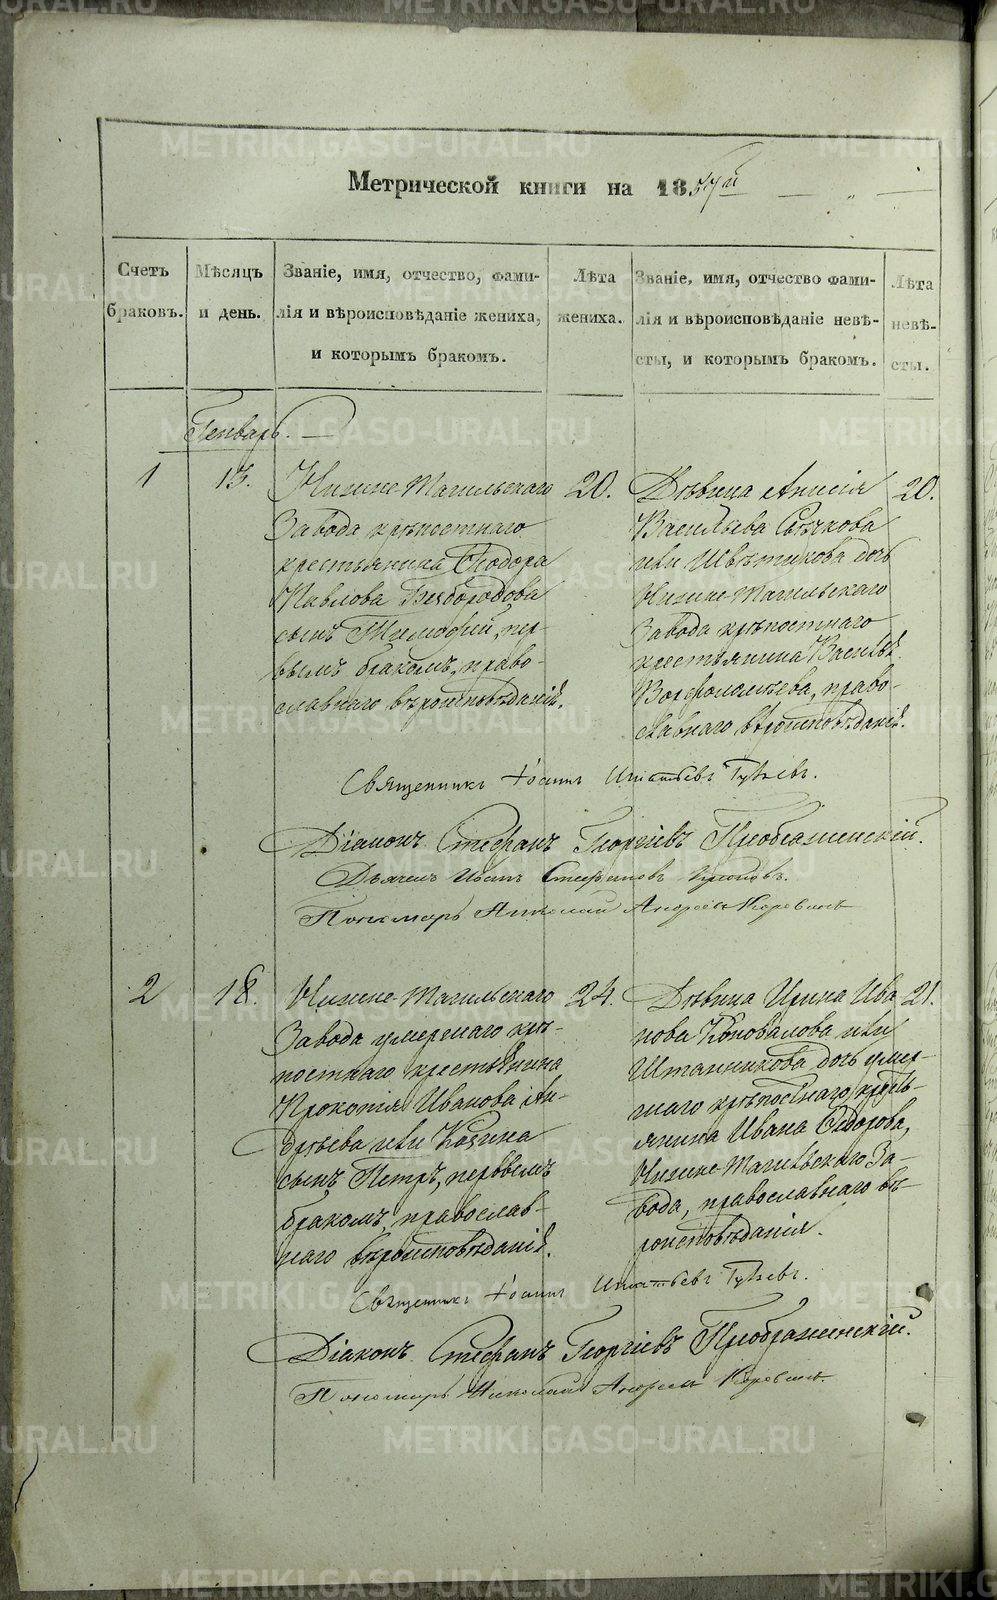 Метрической книги на 1857й
Счетъ браковъ.
Мѣсяцъ и день.
Званіе, имя, отчество, фами-
лія и вѣроисповѣданіе жениха,
и которымъ бракомъ.
Лѣта жениха.
Званіе, имя, отчество фами-
лія и вѣроисповѣданіе невѣ-
сты, и которымъ бракомъ.
Лѣта невѣ-
сты.
Генварь.
1
13.
Нижне-Тагильскаго
Завода крѣпостнаго
крестьянина Ѳеодора
Павлова Безбородова
сынъ Тимофей, пер-
вымъ бракомъ, право-
славнаго вѣроисповѣданія.
20.
Дѣвица Анисія
Васильева
или дочь
Нижне-Тагильскаго
Завода крѣпостнаго
крестьянина Василья
Ворфоломѣева, право-
славнаго вѣроисповѣданія.
20.
Священникъ Іоаннъ Игнатьевъ
Діаконъ Стефанъ Георгіевъ Преображенскій.
Дьячекъ Иванъ Стефановъ
Пономарь Николай Андреевъ
2
18.
Нижне-Тагильскаго
Завода умершаго крѣ-
постнаго крестьянина
Прокопія Иванова Ан-
дрѣева или Козина
сынъ Петръ, первымъ
бракомъ, православ-
наго вѣроисповѣданія.
24.
Дѣвица Ирина Ива
нова Коновалова или
Штанникова дочь умер-
шаго крѣпостнаго кресть-
янина Ивана Ѳедорова,
Нижне-Тагильскаго За-
вода, православнаго вѣ-
роисповѣданія.
21.
Священникъ Іоаннъ Игнатьевъ
Діаконъ Стефанъ Георгіевъ Преображенскій.
Пономарь Николай Андреевъ
METRIKI.GASO-URAL.RU